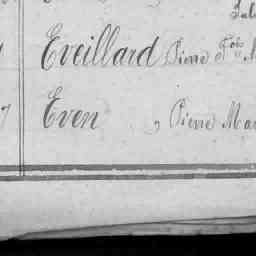 Eveillard Pierre Fois
7 Even, Pierre Ma